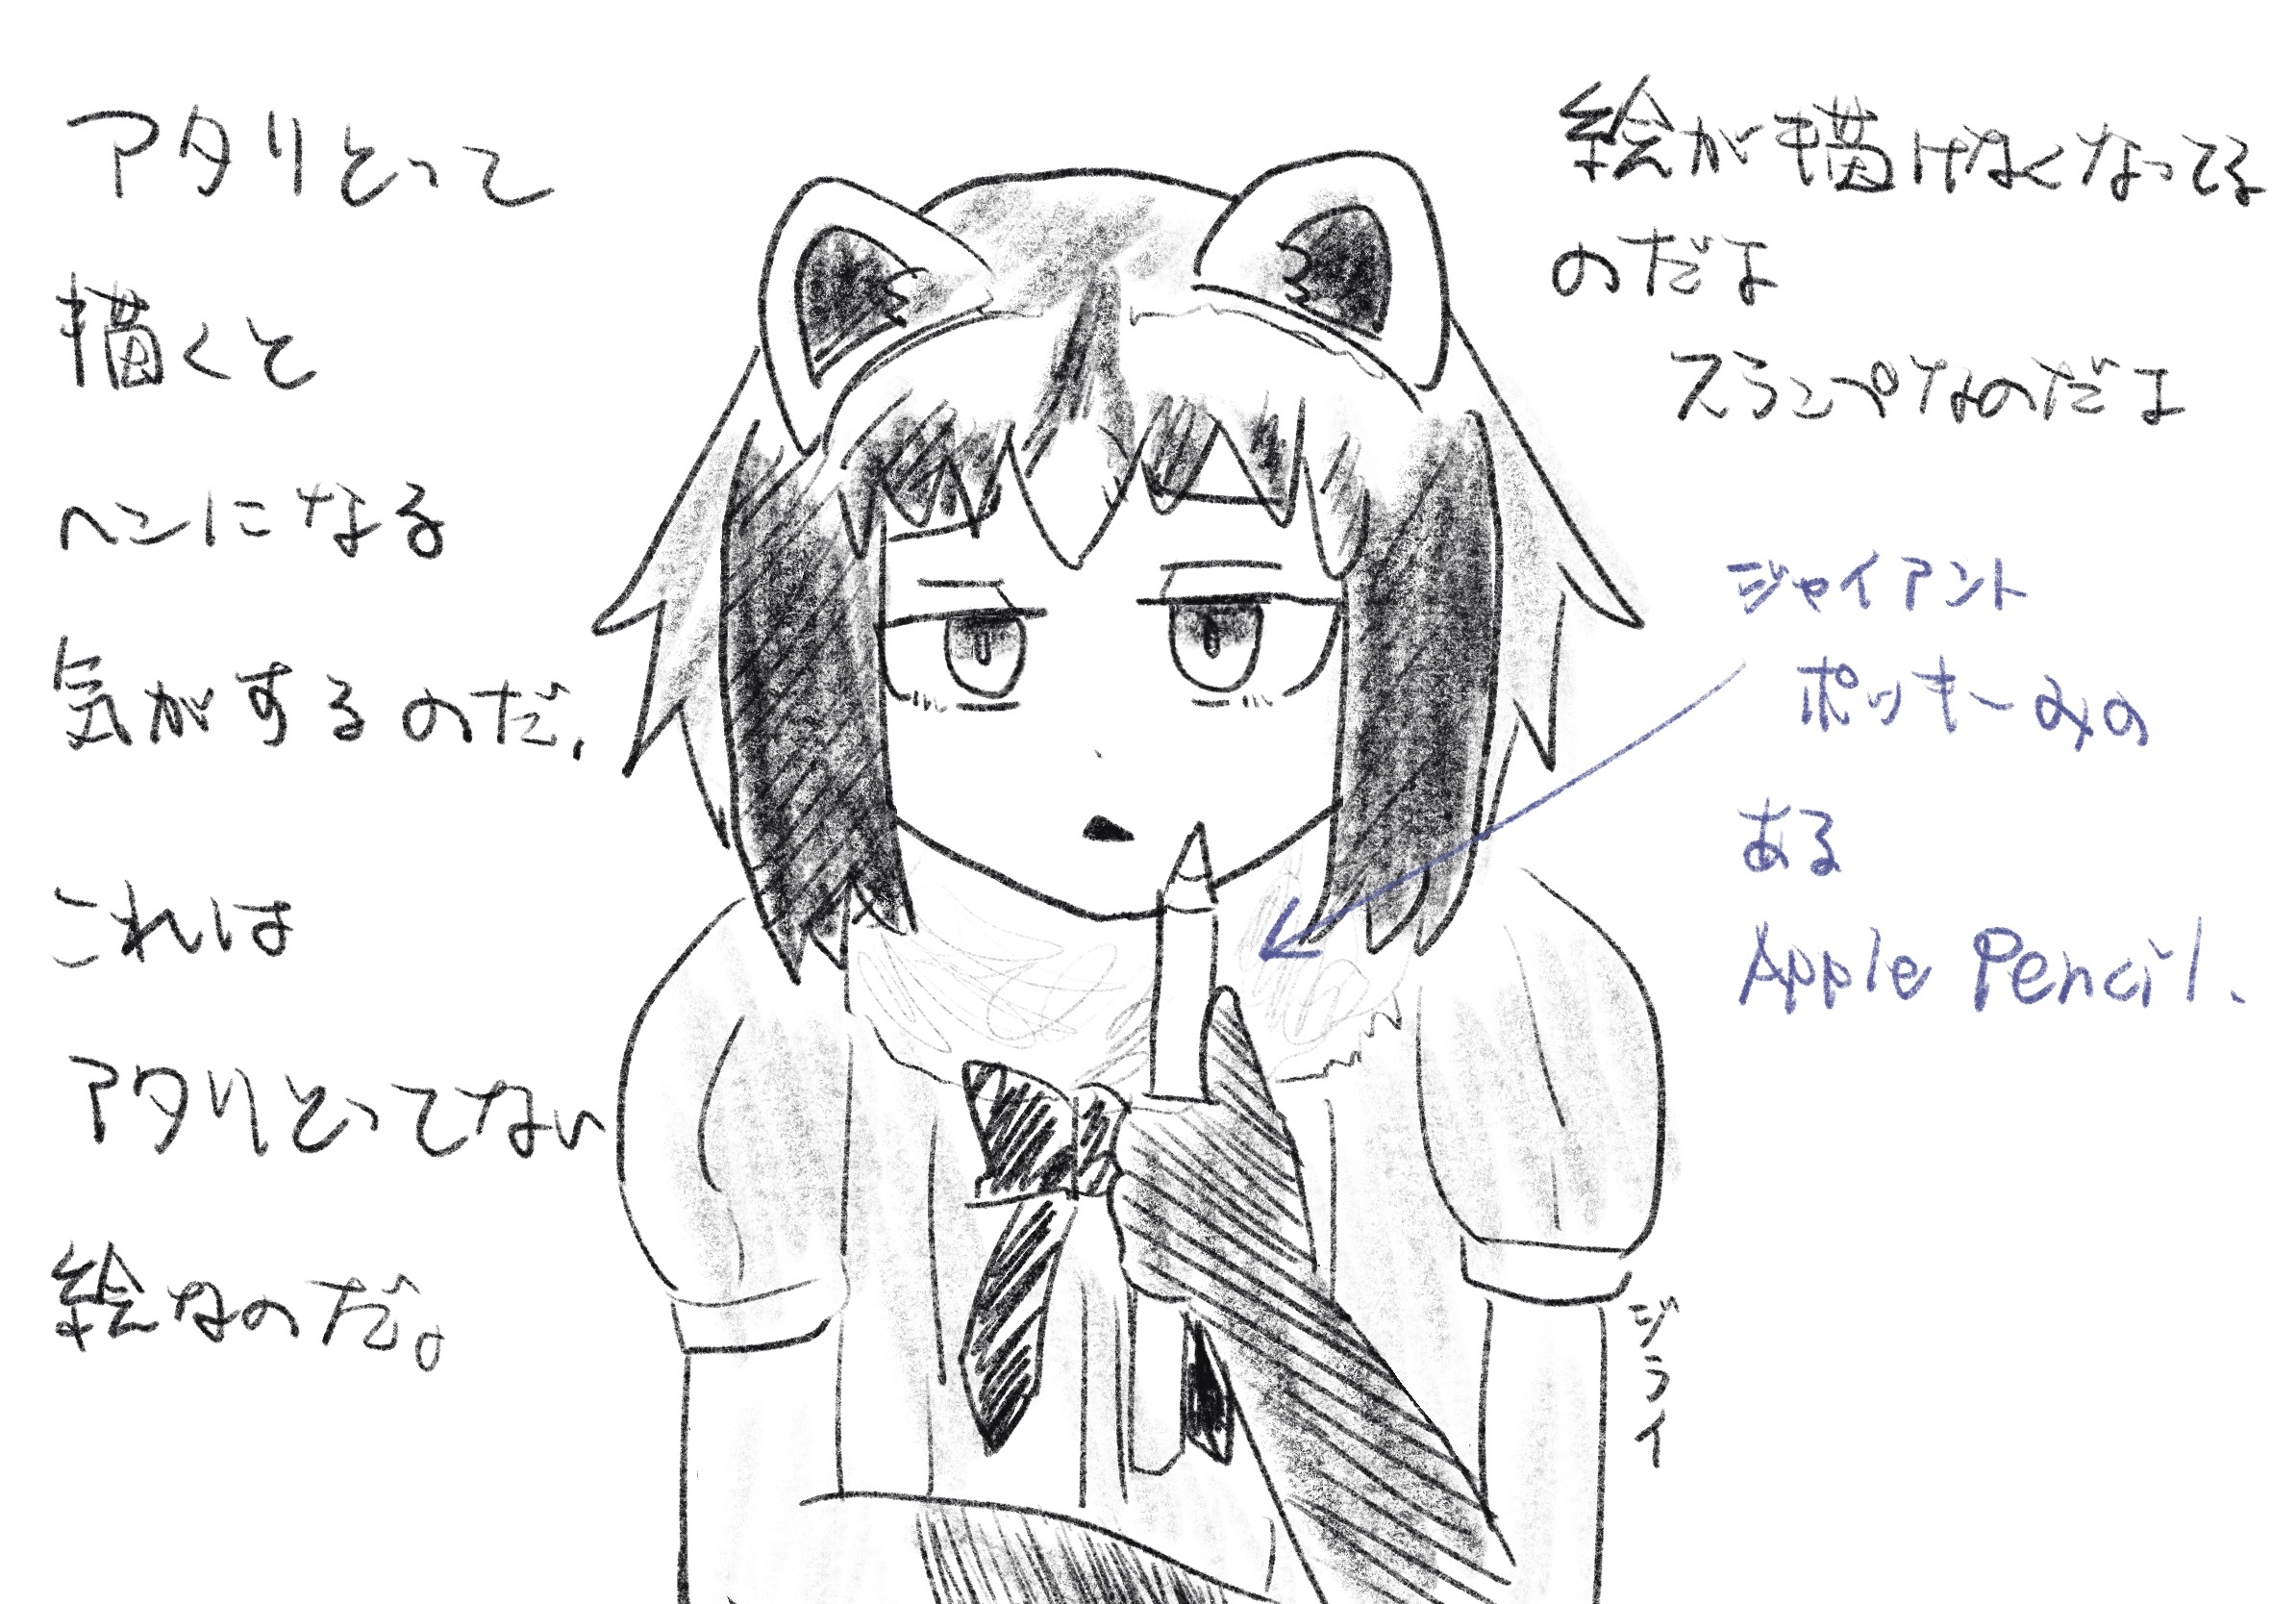 アタリとって
描くと
ヘンになる
気がするのだ、
これは
アタリとってない
絵なのだ。
絵が描けなくなってる
のだよ
スランプなのだよ
ジャイアント
ポッキーみの
ある
Apple Pencil.
ジライ